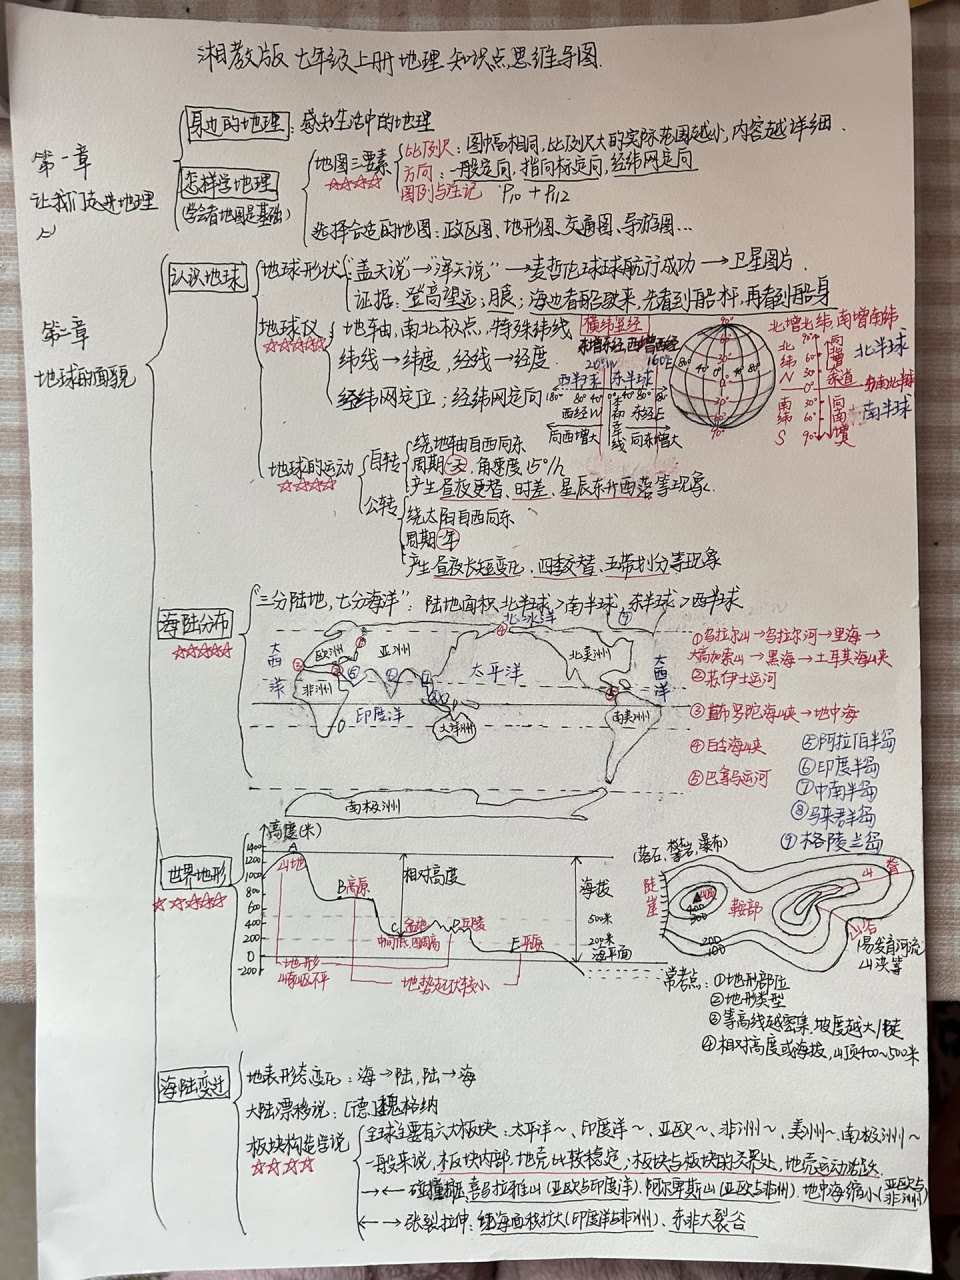 湘教版 七年级上册 地理 知识点思维导图
第一章
让我们走进地理
身边的地理：感知生活中的地理
怎样学地理
(学会看地图是基础)
地图三要素
☆☆☆☆
比例尺：图幅相同，比例尺大的实际范围越小，内容越详细．
方向：一般定向，指向标定向，经纬网定向
图例与注记 P10 + P112
选择合适的地图：政区图、地形图、交通图、导游图…
第二章
地球的面貌
认识地球
地球形状
"盖天说"→"浑天说"→麦哲伦环球航行成功→卫星图片．
证据：登高望远；月食；海边看船驶来，先看到船杆，再看到船身
地球仪
☆☆☆☆☆
地轴，南北极点，特殊纬线
纬线→纬度，经线→经度．
经纬网定位；经纬网定向
横纬竖经
东增东经，西增西经
20°W 160°E
西半球 东半球
180° 80° 40° 0° 40° 80°
西经W 东经E
本初子午线
向西增大 向东增大
北增北纬，南增南纬
北纬N
90° 60° 30° 0° 30° 60° 90°
向北增大
北半球
赤道
南纬S
向南增大
南半球
地球的运动
☆☆☆☆☆
自转
绕地轴自西向东
周期一天，角速度15°/h
产生昼夜更替、时差、星辰东升西落等现象．
公转
绕太阳自西向东
周期一年
产生昼夜长短变化、四季交替、五带划分等现象
海陆分布
☆☆☆☆☆
"三分陆地，七分海洋"：陆地面积 北半球>南半球，东半球>西半球
北冰洋
大西洋
欧洲
亚洲
非洲
印度洋
太平洋
大洋洲
北美洲
南美洲
大西洋
南极洲
①乌拉尔山→乌拉尔河→里海→
大高加索山→黑海→土耳其海峡
②苏伊士运河
③直布罗陀海峡→地中海
④白令海峡
⑤巴拿马运河
⑤阿拉伯半岛
⑥印度半岛
⑦中南半岛
⑧马来群岛
⑨格陵兰岛
世界地形
☆☆☆☆☆
高度(米)
1400
1200
1000
800
600
400
200
0
-200
A
山地
B高原
C 盆地
中间低，四周高
D丘陵
E平原
相对高度
海拔
500米
200米
海平面
地形
崎岖不平
地势起伏较小
(落石，攀岩，瀑布)
陡崖
山顶
400
300
鞍部
200
100
山脊
山谷
(易发育河流
山洪等
常考点：①地形部位
②地形类型
③等高线越密集，坡度越大/陡
④相对高度或海拔，山顶400~500米
海陆变迁
地表形态变化：海→陆，陆→海
大陆漂移说：[德]魏格纳
板块构造学说
☆☆☆☆
全球主要有六大板块：太平洋~、印度洋~、亚欧~、非洲~、美洲~、南极洲~
一般来说，板块内部，地壳比较稳定；板块与板块的交界处，地壳运动活跃．
→← 碰撞挤压：喜马拉雅山(亚欧与印度洋)．阿尔卑斯山(亚欧与非洲)．地中海缩小(亚欧与非洲)
←→ 张裂拉伸：红海面积扩大(印度洋与非洲)、东非大裂谷